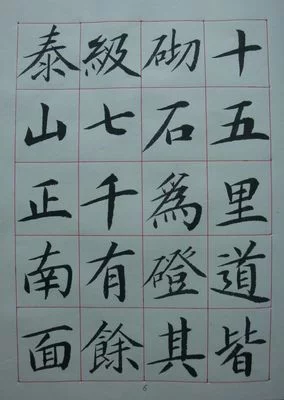 十五里道皆
砌石爲磴其
級七千有餘
泰山正南面
6